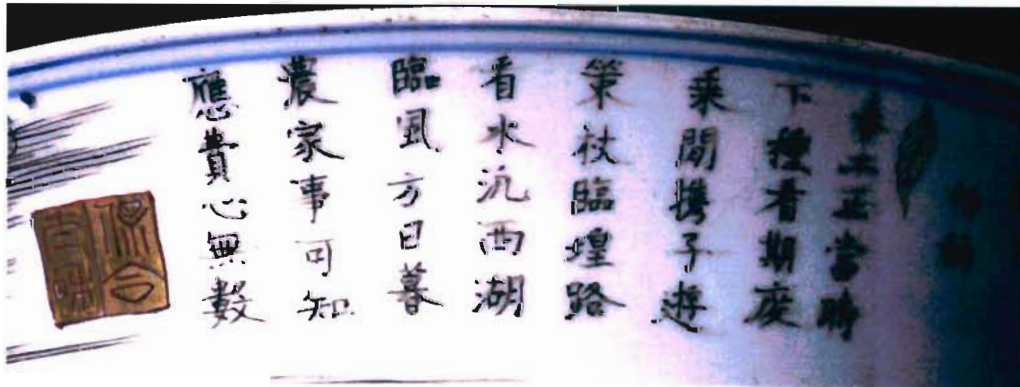 工正當時
下種看期度
乘間携子遊
策杖臨堭路
看水沉西湖
臨風方日暮
農家事可知
應費心無數